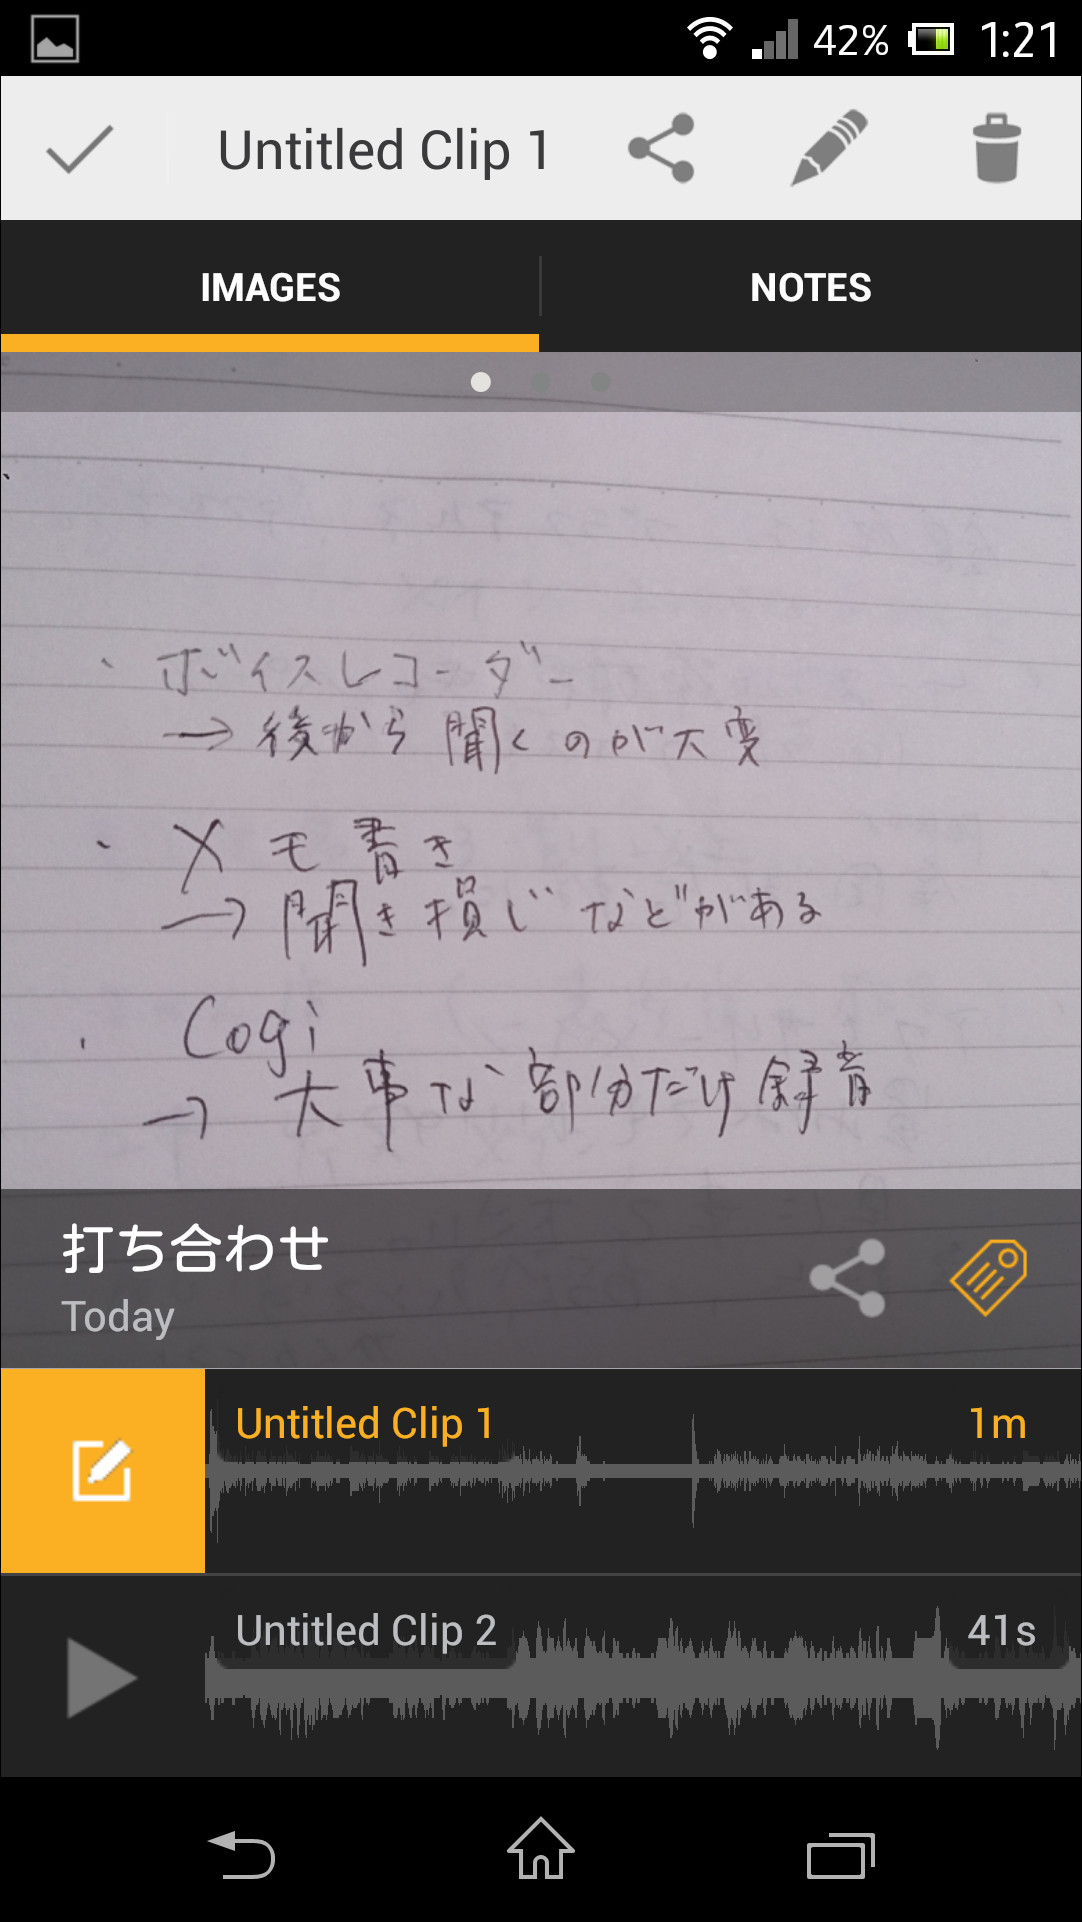 42% 1:21
Untitled Clip 1
IMAGES NOTES
・ボイスレコーダー
→後から聞くのが大変
・メモ書き
→聞き損じなどがある
・Cogi
→大事な部分だけ録音
打ち合わせ
Today
Untitled Clip 1 1m
Untitled Clip 2 41s